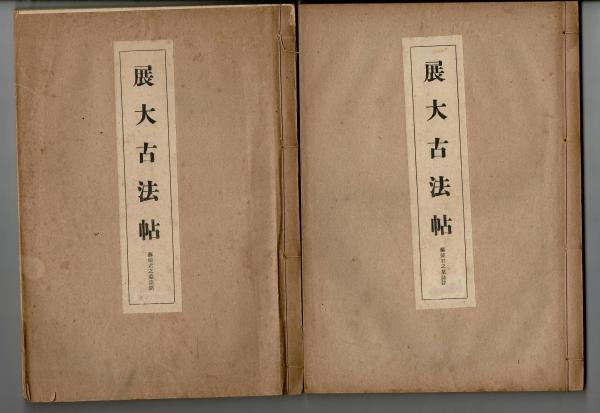 展大古法帖
展大古法帖